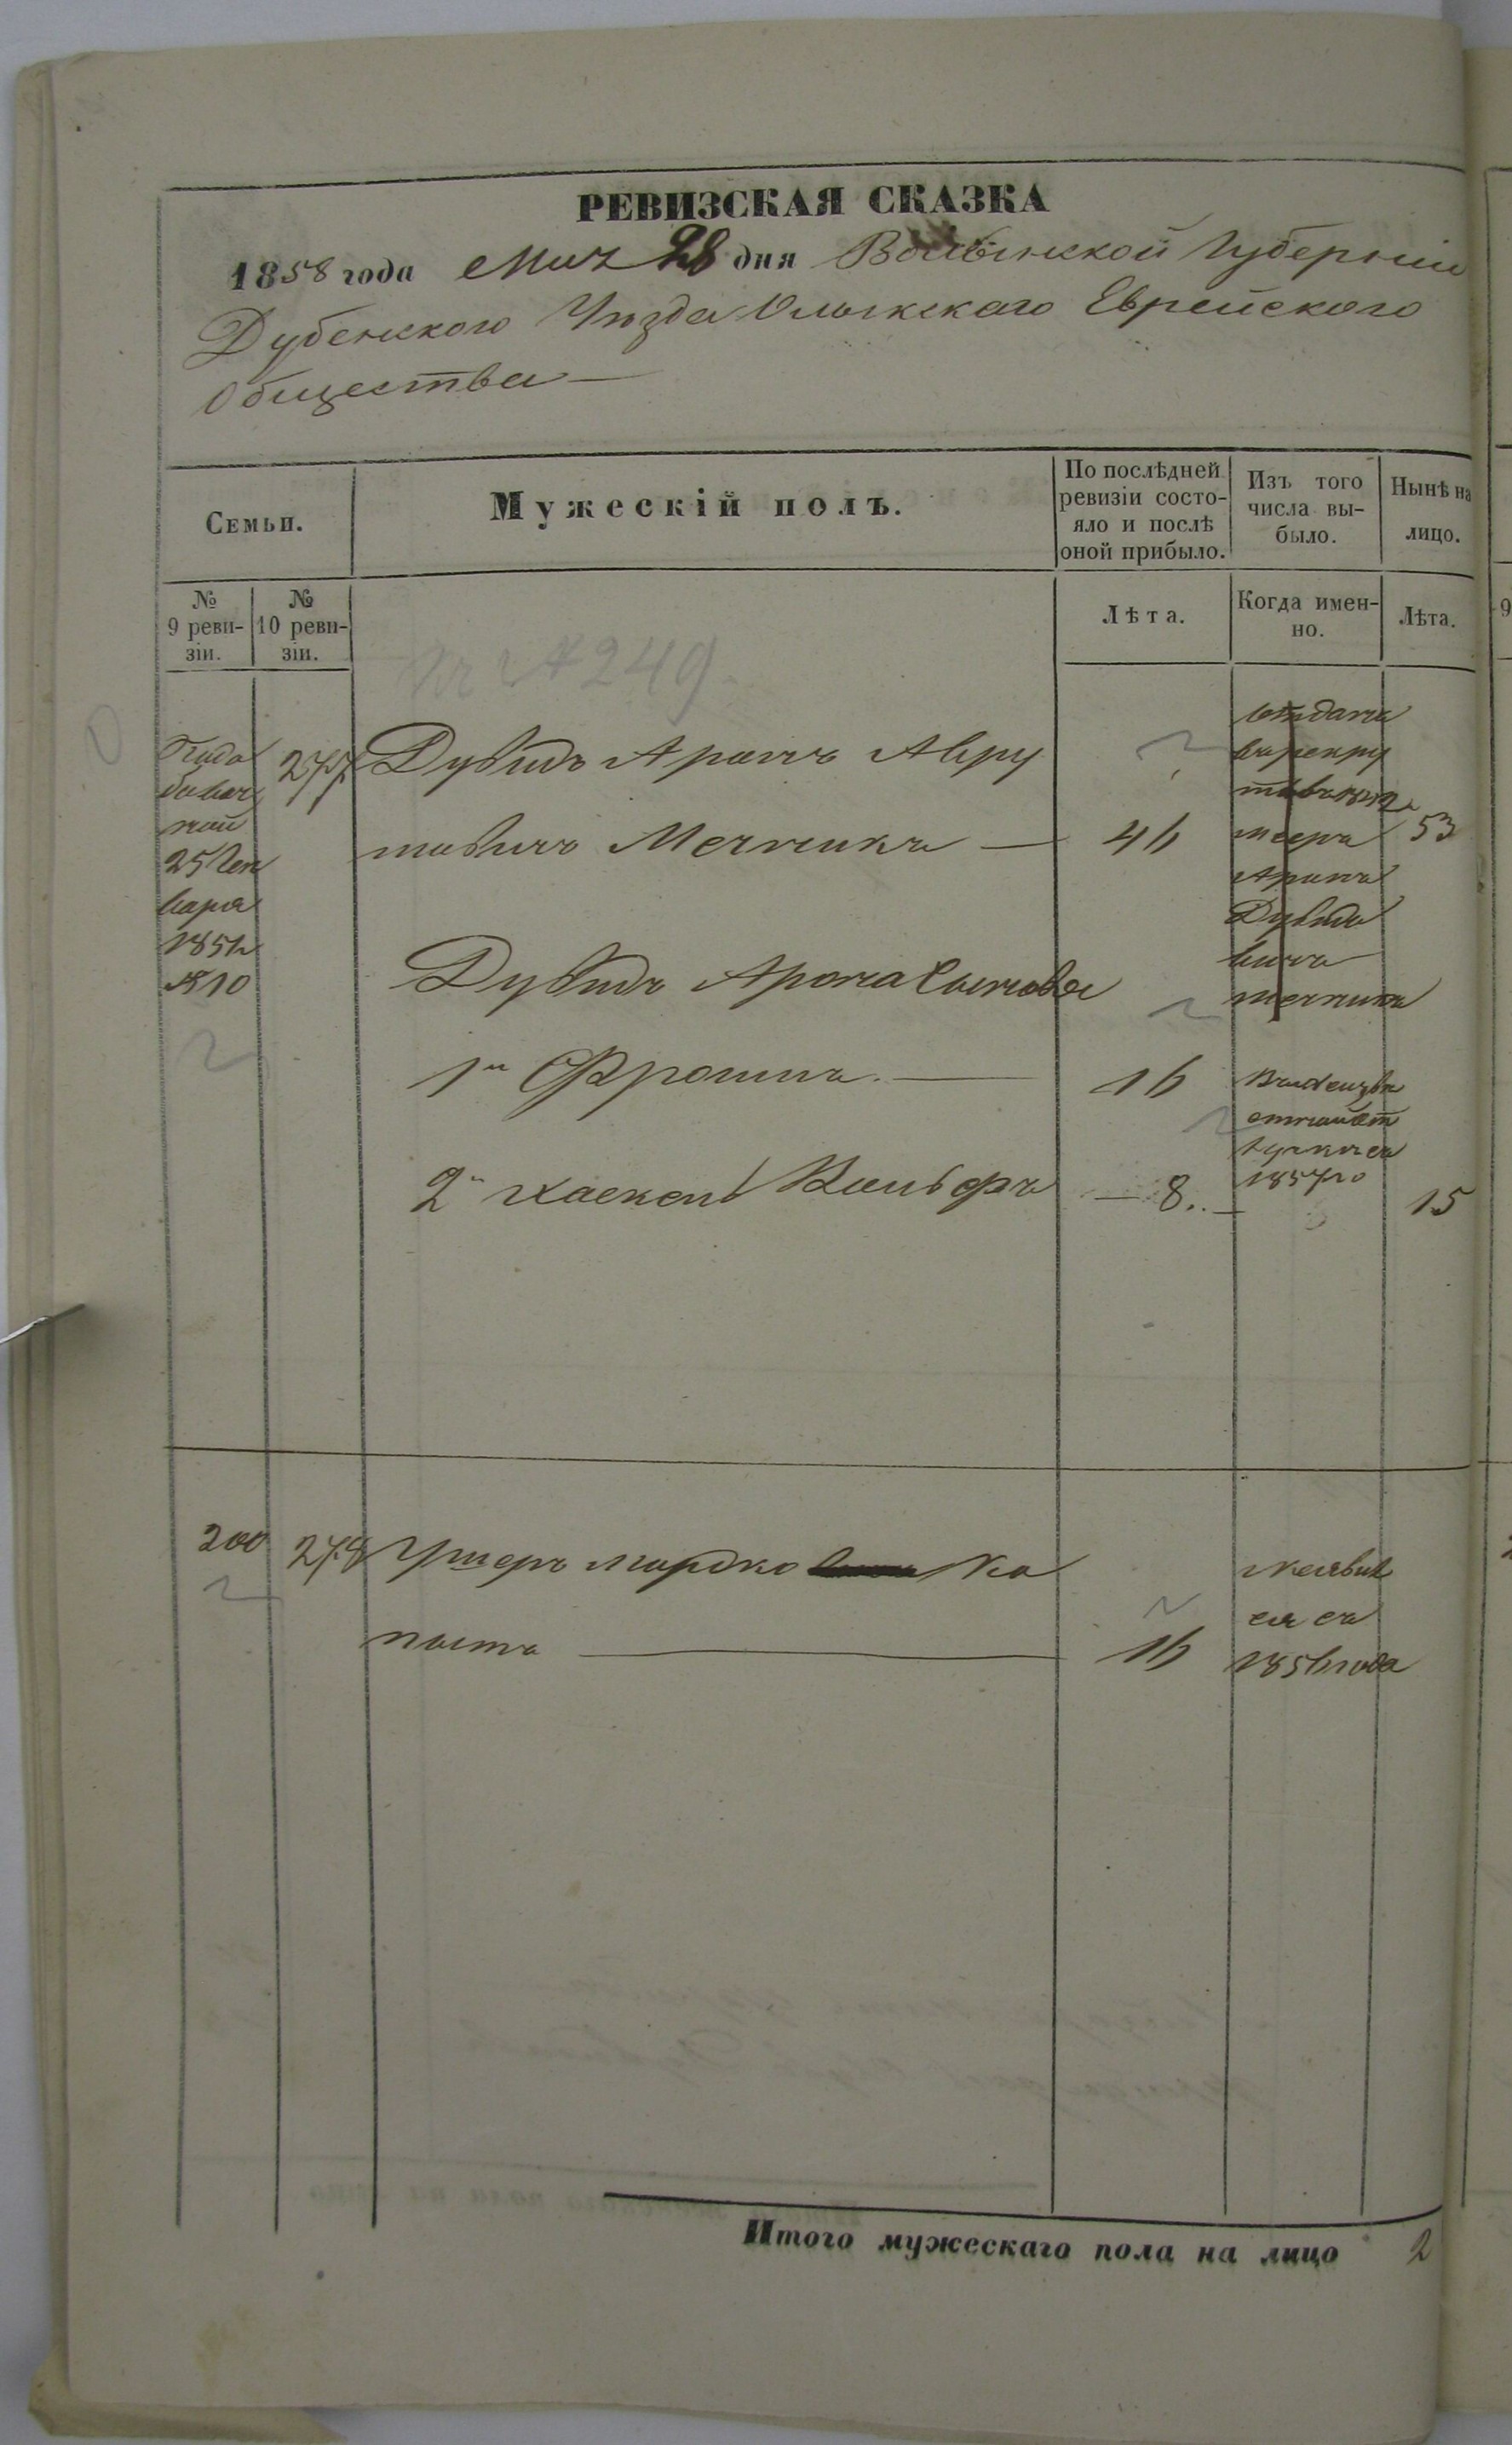 РЕВИЗСКАЯ СКАЗКА
1858 года Мая 28 дня Волынской Губернии
Дубенского Уѣзда Олыкскаго Еврейского
Общества —
Семьи.
Мужескій полъ.
По послѣдней ревизіи состо-
яло и послѣ
оной прибыло.
Изъ того
числа вы-
было.
Нынѣ на
лицо.
№
9 реви-
зіи.
№
10 реви-
зіи.
Лѣта.
Когда имен-
но.
Лѣта.
№ 249
25 Ген
варя
185
№ 10
277
Дувидъ Аронъ Авру
мовичъ Мечникъ — 46
53
отданъ
въ рекру
ты въ
Мееръ
Аронъ
Дувидо
вичъ
Мечникъ
Дувидъ Арона Сыновья
1й Фроимъ. — 16
1857 го
2й Хаскель Вольфъ — 8. —
15
200
278
Ушеръ Мордко Ко
пытъ — 16
неявил
ся съ
1856 года
Итого мужескаго пола на лицо 2